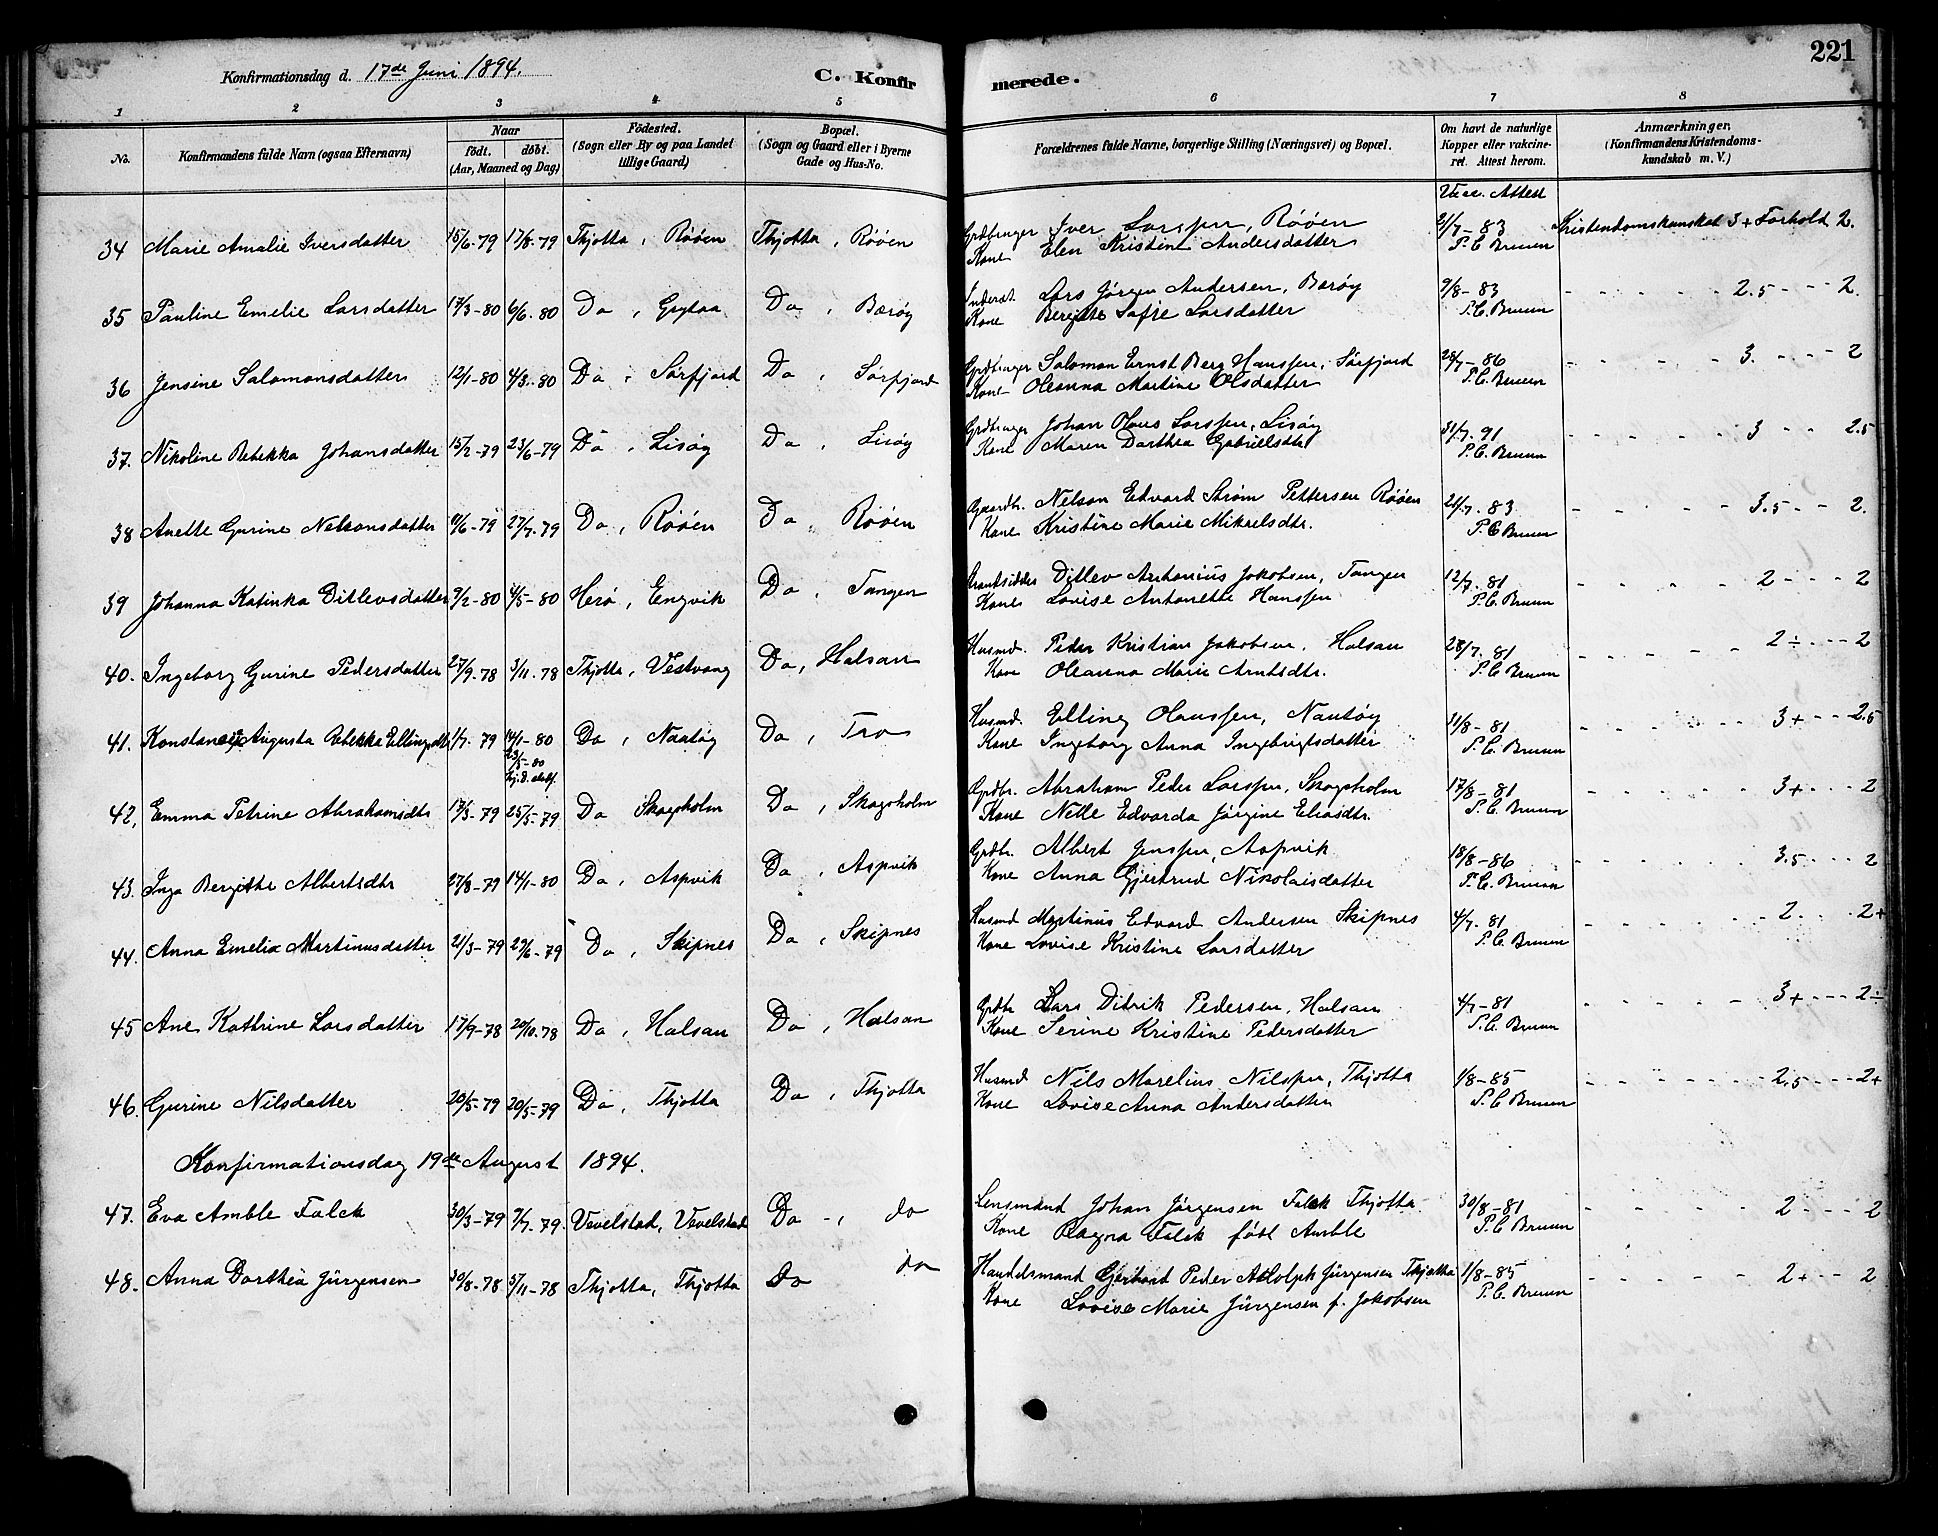 221
Konfirmationsdag d. 17de Juni 1894.
C. Konfirmerede.
1 2 3 4 5 6 7 8
No. | Konfirmandens fulde Navn (ogsaa Efternavn) | Naar födt. döbt. (Aar, Maaned og Dag) | Födested. (Sogn eller By og paa Landet tillige Gaard) | Bopæl. (Sogn og Gaard eller i Byerne Gade og Hus-No. | Forældrenes fulde Navne, borgerlige Stilling (Næringsvei) og Bopæl. | Om havt de naturlige Kopper eller vakcineret. Attest herom. | Anmærkninger. (Konfirmandens Kristendomskundskab m. V.)
Vacc. Attest
34 Marie Amalie Iversdatter 15/6-79 17/8-79 Thjotta, Rööen Thjotta, Rööen Grdbruger Iver Larssen, Rööen 21/7-83 Kristendomskunskab 3+ Forhold 2.
Kone Elen Kristine Andersdatter P. C. Bruun
35 Pauline Emelie Larsdatter 17/3-80 6/6-80 Do, Do, Baröy Inderst. Lars Jörgen Andersen, Baröy 9/8-83 2.5 - - - 2.
Kone Bergitte Sofie Larsdatter P. C. Bruun
36 Jensine Salamonsdatter 12/1-80 4/3-80 Do, Sörfjord Do, Sörfjord Grdbruger Salamon Ernst Berg Hanssen, Sörfjord 28/7-86 3. - - - 2
Kone Oleanna Martine Olsdatter P. C. Bruun
37. Nikoline Rebekka Johansdatter 15/2-79 23/6-79 Do, Lisöy Do, Lisöy Grdbruger Johan Olaus Larssen, Lisöy 31/7.91 3 - - 2.5
Kone Maren Darthea Gabrielsdtr P. C. Bruun
38 Anette Gurine Nelsonsdatter 9/6-79 27/7.79 Do, Rööen Do, Rööen Gaardbr. Nelson Edvard Ström Pettersen Rööen 21/7.83 3.5 - - 2.
Kone Kristine Marie Mikaelsdtr. P. C Bruun
39 Johanna Katinka Ditlevsdatter 9/2-80 4/5-80 Herö, Engvik Do, Tangen Strandsidder Ditlev Antonius Jakobsen, Tangen 12/7.81 2 - - - 2
Kone Lovise Antonette Hanssen P. C. Bruun
40. Ingeborg Gurine Pedersdatter 27/9.78 3/11.78 Thjotta, Vestvaag Do, Halsan Husmd. Peder Kristian Jakobsen, Halsan 28/7.81 2 ÷ - - - 2
Kone Oleanna Marie Arntsdtr. P. C. Bruun
41. Augusta Rebekka Ellingsdtr 1/7.79 14/1-80 Do, Nautöy Do, Tro Husmd. Elling Olaussen, Nautöy 31/8-81 3+ - - - 2.5
23/5-80 Kone Ingeborg Anna Ingebrigtsdatter P. C. Bruun
42, Emma Petrine Abrahamsdtr 17/3-79 25/5-79 Do Skagsholm Do, Skagsholm Grdbr. Abraham Peder Larssen, Skagsholm 17/8-81 3+ - - - 2
Kone Nelle Edvarda Jörgine Eliasdtr. P. C. Bruun
43. Inga Bergitte Albertsdtr 27/8-79 14/1-80 Do, Aspvik Do, Aspvik Grdbr. Albert Jenssen, Aspvik 18/8-86 3.5 - - - 2
Kone Anna Gjertrud Nikolaisdatter P. C. Bruun
44. Anna Emelia Martinusdatter 21/3-79 29/6-79 Do, Skipnes Do, Skipnes Husmd Martinus Edvard Andersen Skipnes 4/7.81 2. - - 2+
Kone Lovise Kristine Larsdatter P. C. Bruun
45 Ane Kathrine Larsdatter 17/9-78 20/10.78 Do, Halsan Do, Halsan Grdbr Lars Didrik Pedersen, Halsan 4/7-81 3+ - - - 2÷
Kone Serine Kristine Pedersdatter P. C. Bruun
46. Gurine Nilsdatter 20/5-79 20/5-79 Do, Thjotta Do, Thjotta Husmd Nils Marelius Nilssen, Thjotta 1/8-85 2.5 - - - 2+
Kone Lovise Anna Andersdatter P. C Bruun
Konfirmationsdag 19de August 1894.
47. Eva Amble Falck 30/3-79 7/7.79. Vevelstad, Vevelstad Do -, do Lensmand Johan Jörgensen Falck Thjotta 30/8-81 2 - - - 2
Kone Ragna Falck född Amble P. C. Bruun
48. Anna Dorthea Jürgensen 30/8-78 5/11-78 Thjotta, Thjotta Do do Handelsmand Gerhard Peder Adolph Jürgensen Thjotta 1/8-85 2+ - - 2
Kone Lovise Marie Jürgensen f. Jakobsen P. C. Bruun